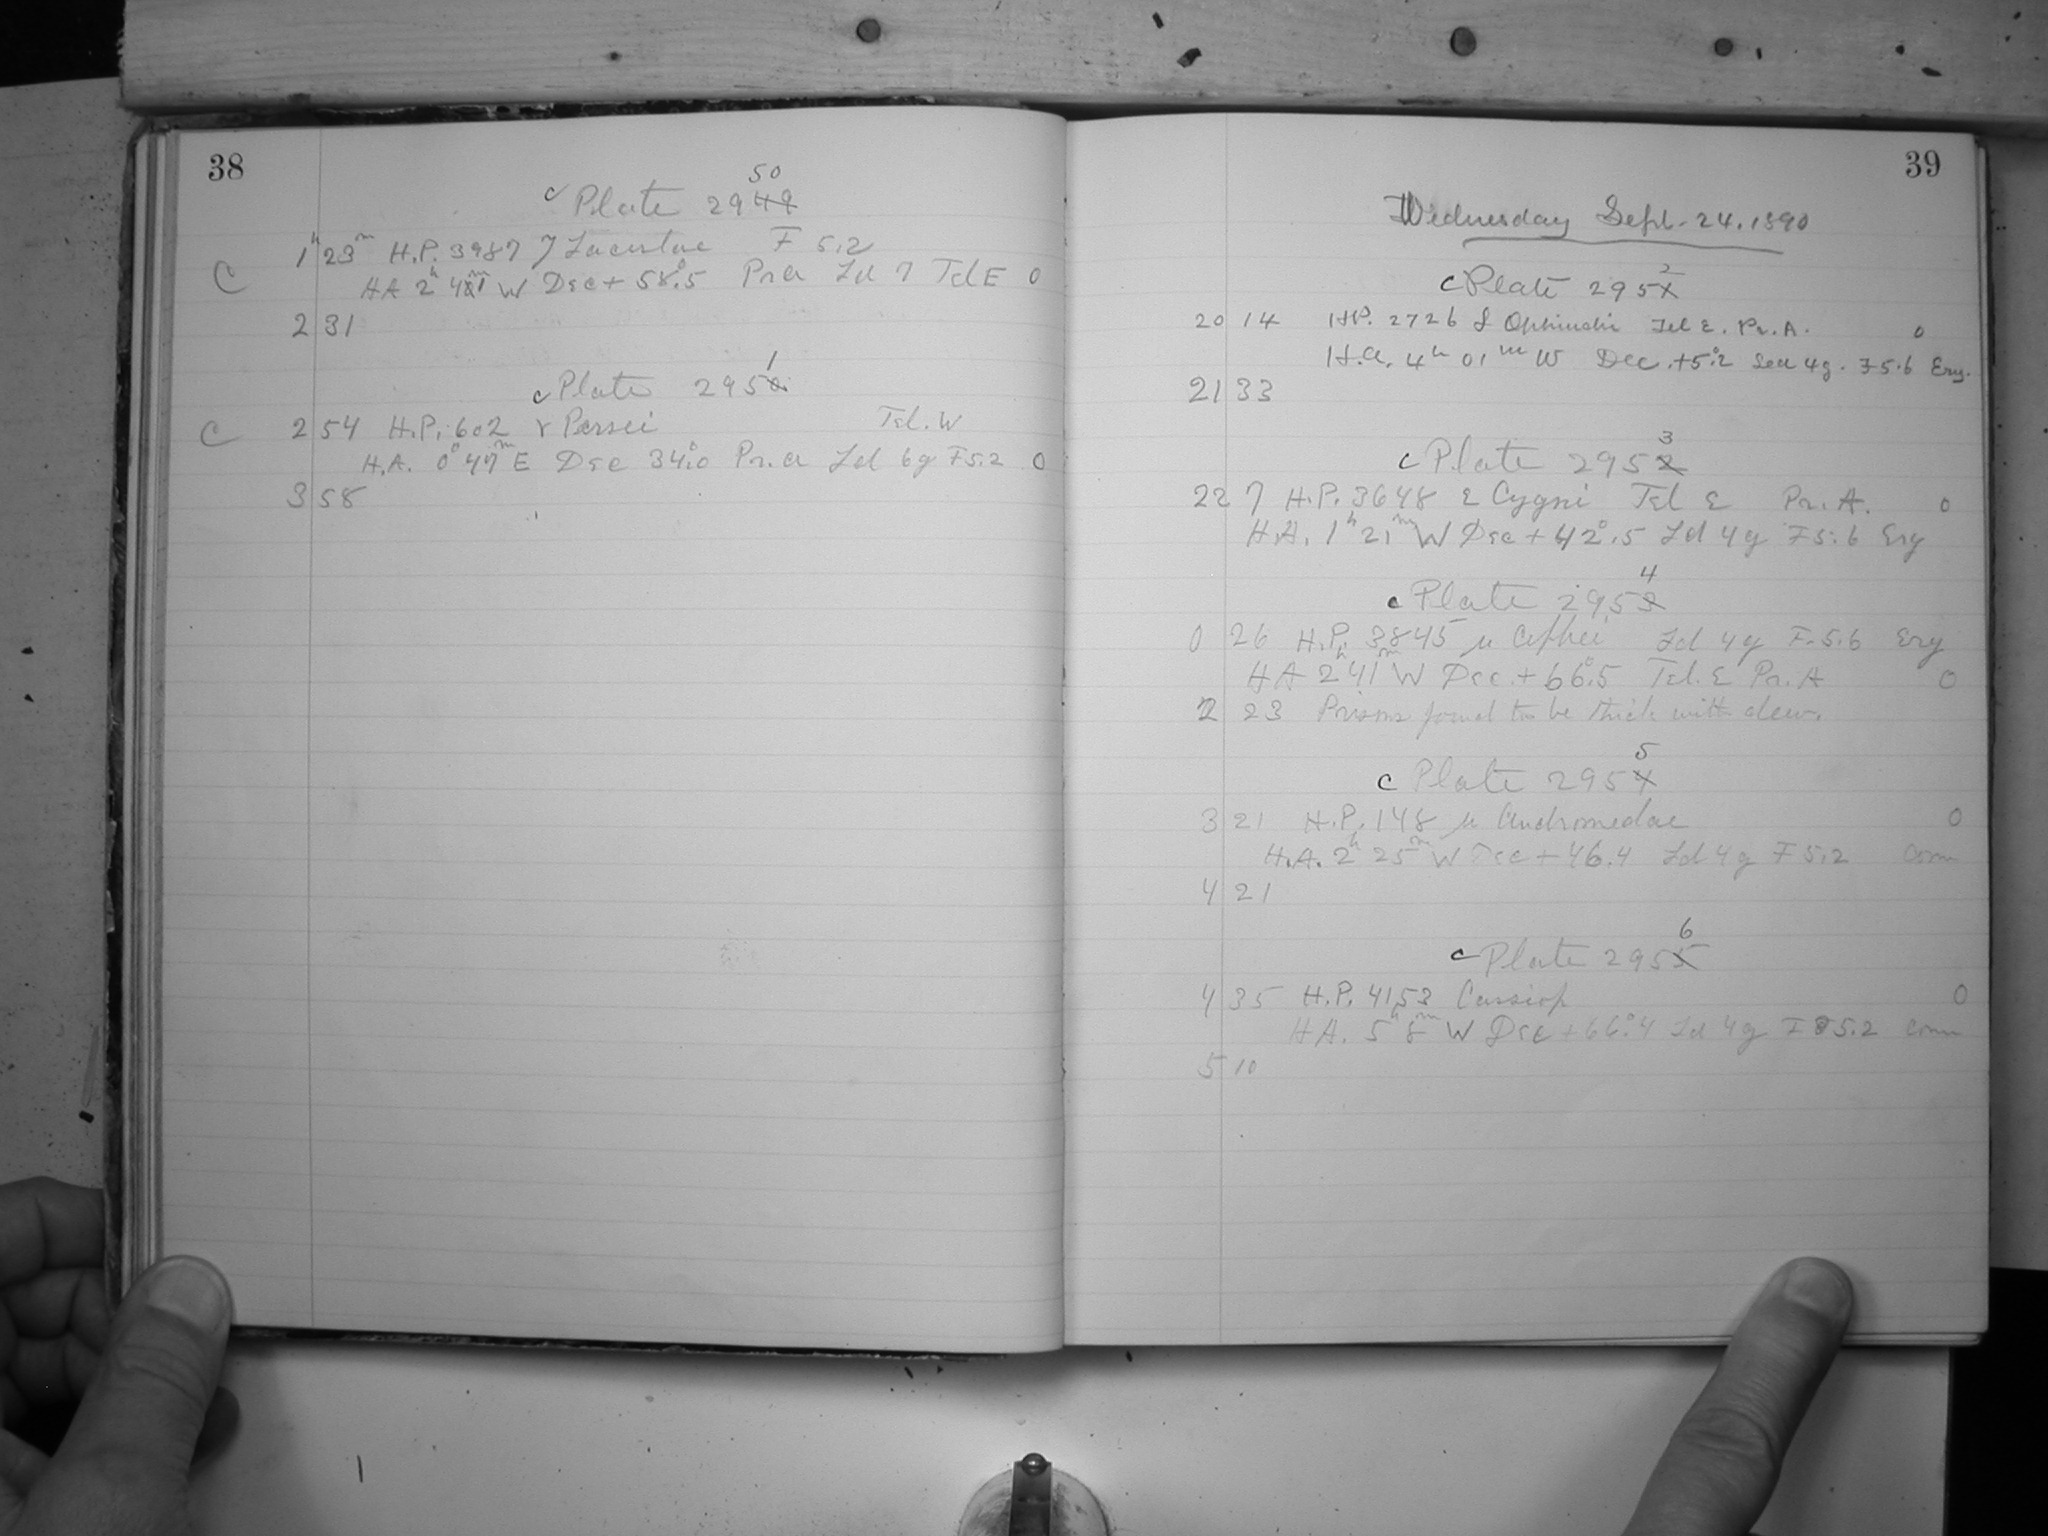 38
50
c Plate 2949
1h 23m H.P. 3987 7 Lacertae F 5.2
C HA 2h 41m W Dec + 58°.5 Pr a Ld 7 Tel E 0
2 31
1
c Plate 2950
C 2 54 H.P. 602 γ Persei Tel. W
H.A. 0° 47m E Dec 34°.0 Pr. a Ld 6g F 5.2 0
3 58
39
Wednesday Sept. 24. 1890
2
c Plate 2951
20 14 H.P. 2726 Ophiuchi Tel E. Pr. A. 0
H.a. 4h 01m W Dec. +5°.2 Sed 4g. F 5.6 Ery.
21 33
3
c Plate 2952
22 7 H.P. 3648 ε Cygni Tel E Pr. A. 0
H.A. 1h 21m W Dec + 42°.5 Ld 4g F 5.6 Ery
4
c Plate 2953
0 26 H.P. 3845 μ Cephei Ld 4g F. 5.6 Ery
HA 2h 41m W Dec. + 66°.5 Tel. E Pr. A 0
2 23 Prisms found to be thick with dew.
5
c Plate 2954
3 21 H.P. 148 μ Andromedae 0
H.A. 2h 25m W Dec + 46.4 Ld 4g F 5.2 Com
4 21
6
c Plate 2955
4 35 H.P. 4153 Cassiop 0
HA. 5h 8m W Dec + 66°.4 Ld 4g F 5.2 Com
5 10